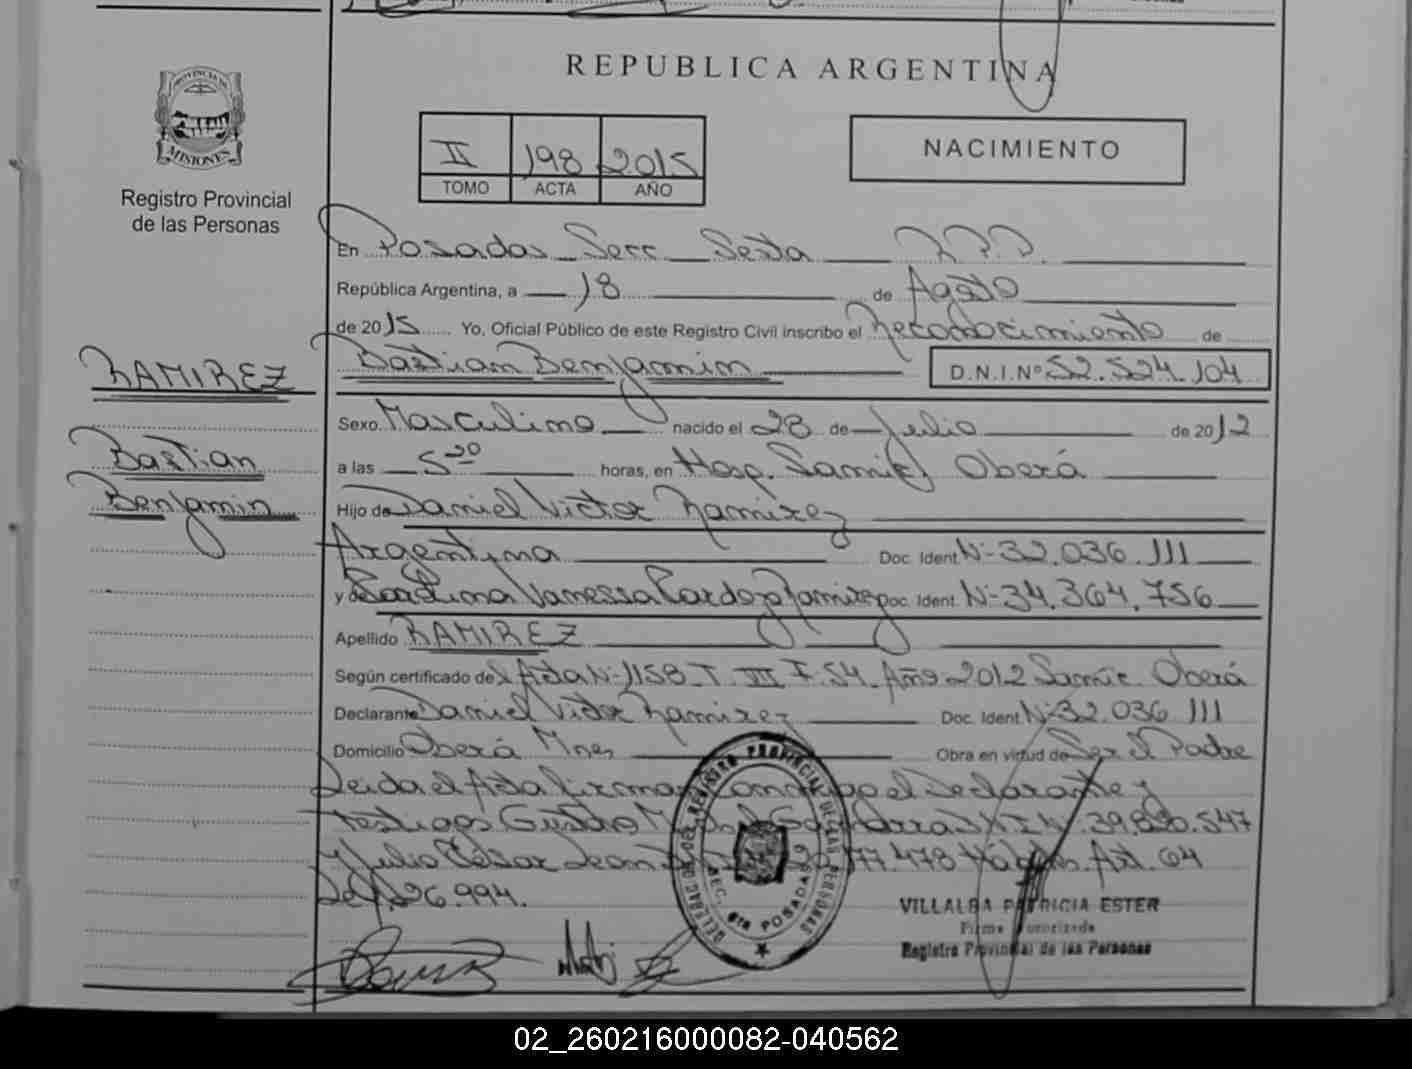 REPUBLICA ARGENTINA
PROVINCIA DE
MISIONES
Registro Provincial
de las Personas
II 198 2015
TOMO ACTA AÑO
NACIMIENTO
En Posadas Secc Sexta R.P.P.
República Argentina, a 18 de Agosto
de 2015 Yo, Oficial Público de este Registro Civil inscribo el Reconocimiento de
Bastian Benjamin D.N.I.Nº 52.524.104
RAMIREZ
Bastian
Benjamin
Sexo Masculino nacido el 28 de Julio de 2012
a las 5 20 horas, en Hosp. Samic Oberá
Hijo de Daniel Victor Ramirez
Argentina Doc. Ident. Nº 32.036.111
y de Carolina Vanessa Cardozo Ramirez Doc. Ident. Nº 34.364.756
Apellido RAMIREZ
Según certificado del Acta Nº 1158 T III F 54 Año 2012 Samic Oberá
Declarante Daniel Victor Ramirez Doc. Ident. Nº 32.036.111
Domicilio Oberá Mnes Obra en virtud de Ser el Padre
Leida el Acta firman conmigo el Declarante y
testigos Gustavo DNI Nº 39.820.547
y Julio César 77.478 Art. 64
Ley 26.994.
DELEGACION DEL REGISTRO PROVINCIAL DE LAS PERSONAS
SEC. 6ta POSADAS
VILLALBA PATRICIA ESTER
Firma Autorizada
Registro Provincial de las Personas
02_260216000082-040562